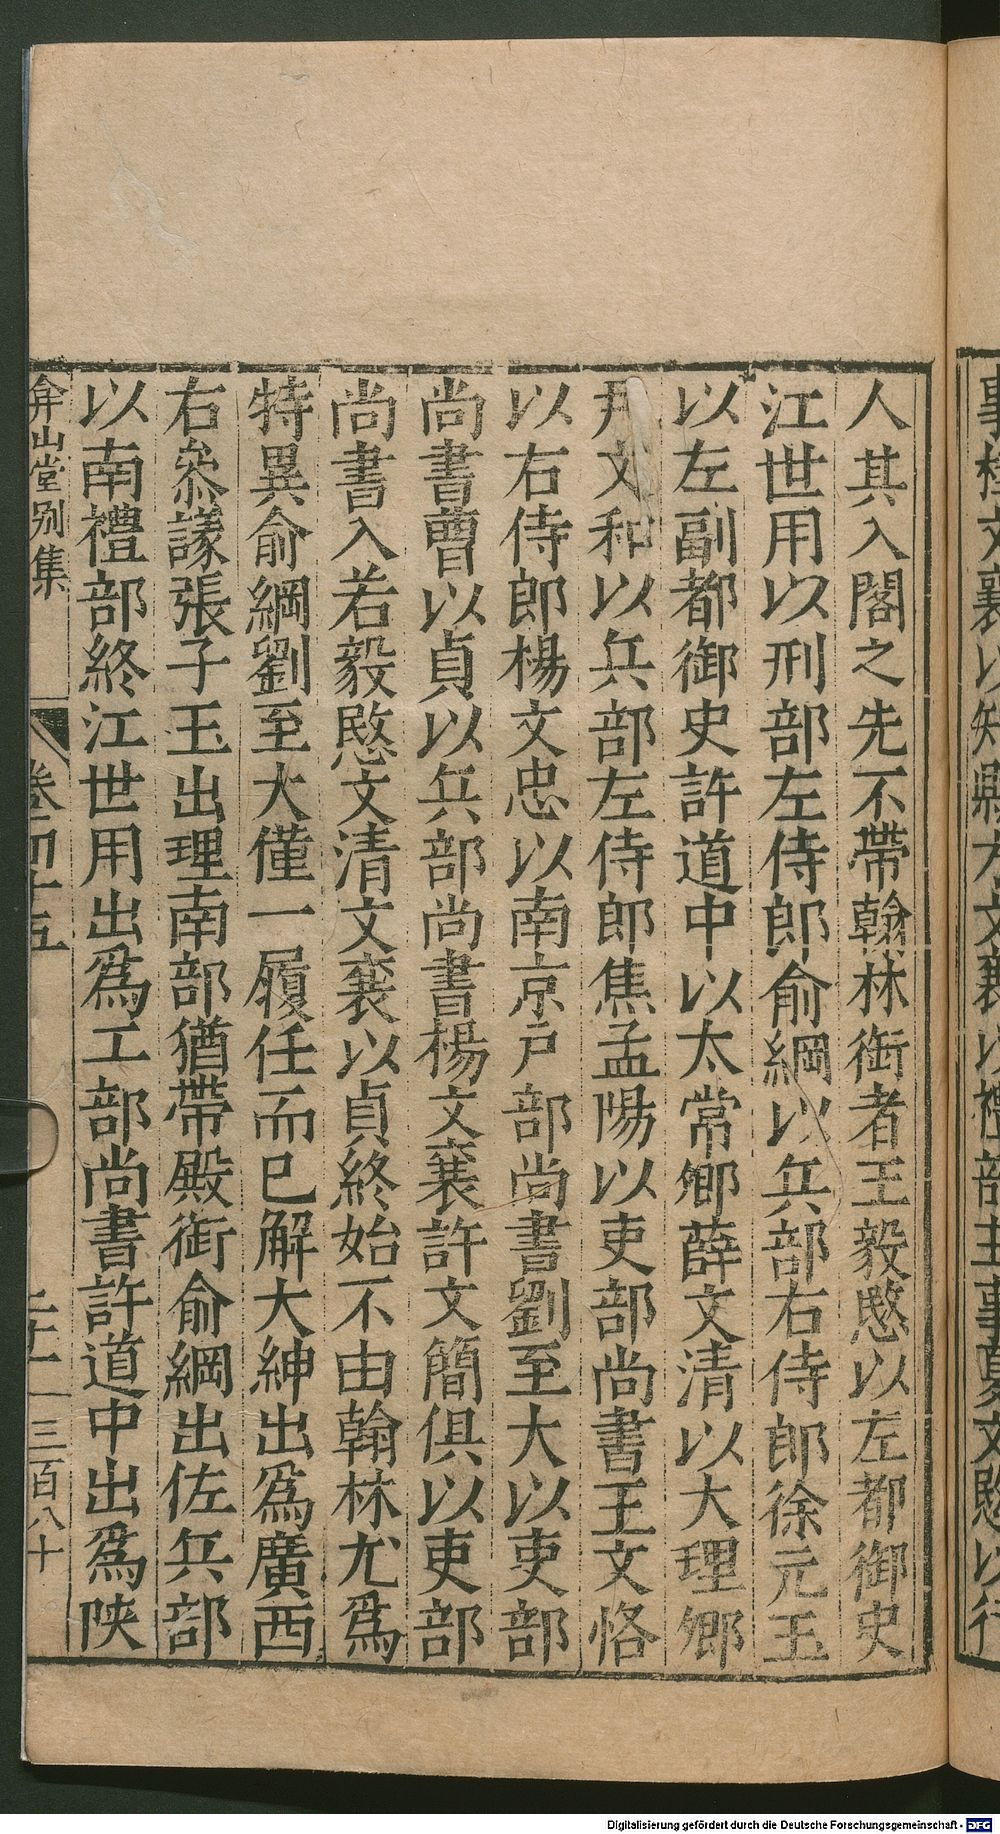 人其入閣之先不帶翰林銜者王毅愍以左都御史
江世用以刑部左侍郎俞綱以兵部右侍郎徐元玉
以左副都御史許道中以太常卿薛文清以大理卿
文和以兵部左侍郎焦孟陽以吏部尚書王文恪
以右侍郎楊文忠以南京戶部尚書劉至大以吏部
尚書曹以貞以兵部尚書楊文襄許文簡俱以吏部
尚書入若毅愍文清文襄以貞終始不由翰林尤爲
特異俞綱劉至大僅一履任而已解大紳出爲廣西
右叅議張子玉出理南部猶帶殿銜俞綱出佐兵部
以南禮部終江世用出爲工部尚書許道中出爲陝
弇山堂別集 卷四十五 三百八十
Digitalisierung gefördert durch die Deutsche Forschungsgemeinschaft - DFG